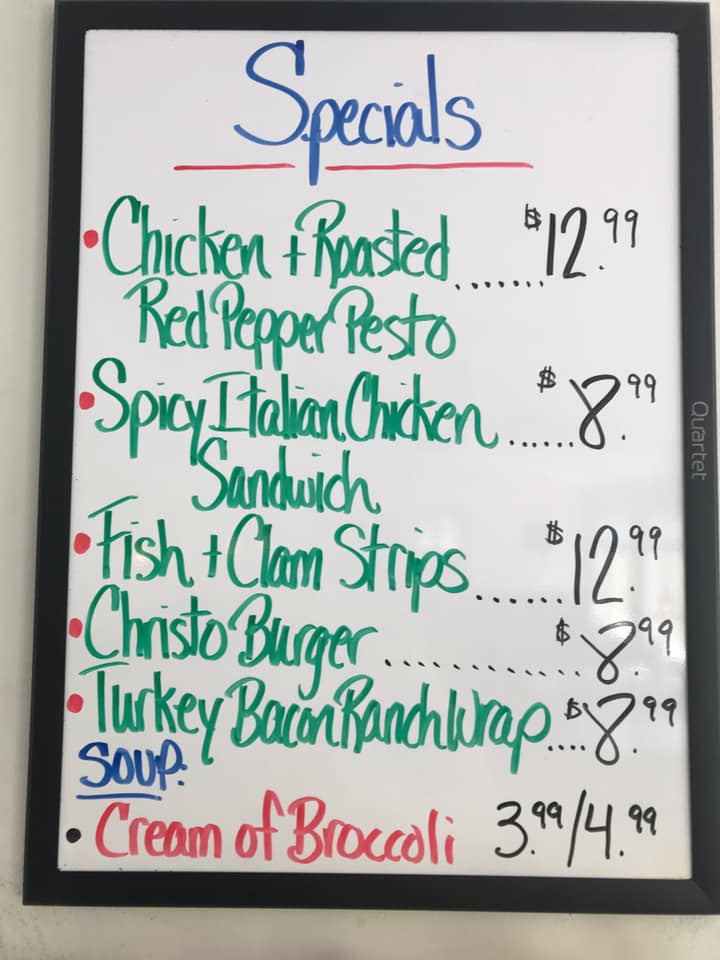 Specials
• Chicken + Roasted ....... $12.99
Red Pepper Pesto
• Spicy Italian Chicken ...... $8.99
Sandwich
• Fish + Clam Strips ...... $12.99
• Christo Burger ............ $8.99
• Turkey Bacon Ranch Wrap .... $8.99
Soup:
• Cream of Broccoli 3.99/4.99
Quartet